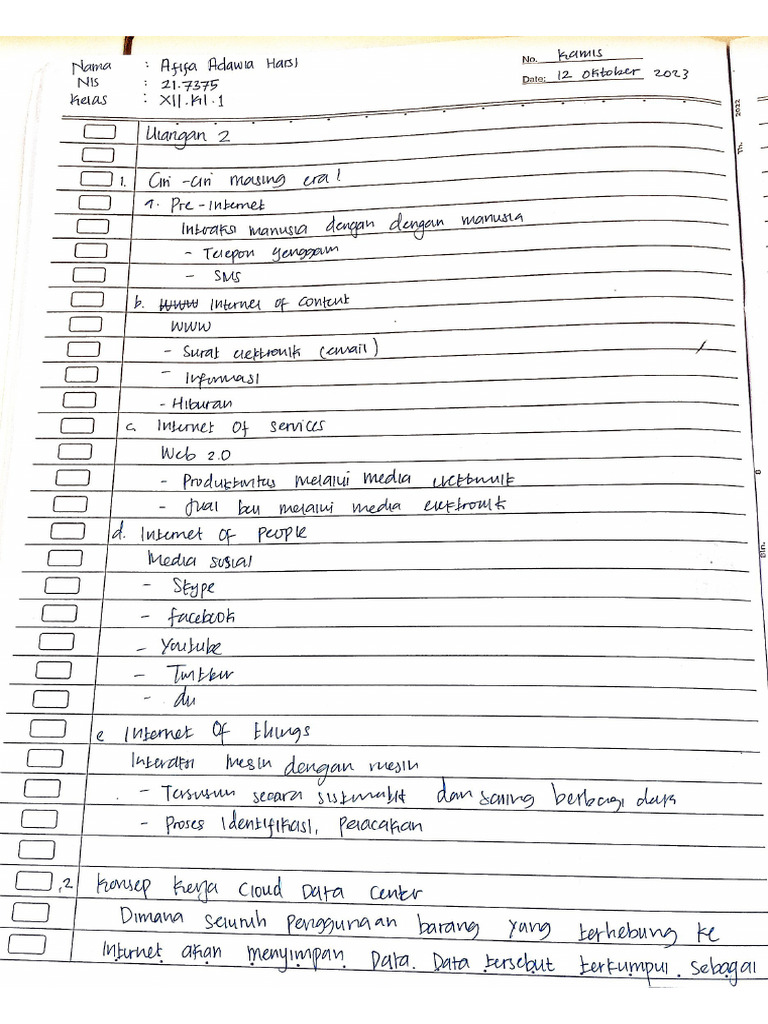 Nama : Afifa Adawia Harsi
NIS : 21.7375
Kelas : XII.KI.1
No. Kamis
Date: 12 Oktober 2023
Ulangan 2
1. Ciri-ciri masing era!
a. Pre-Internet
Interaksi manusia dengan dengan manusia
- Telepon genggam
- SMS
b. WWW Internet of content
WWW
- Surat elektronik (email)
- Informasi
- Hiburan
c. Internet Of services
Web 2.0
- Produktivitas melalui media elektronik
- Jual beli melalui media elektronik
d. Internet of people
Media sosial
- Skype
- facebook
- Youtube
- Twitter
- dll
e Internet Of things
Interaksi mesin dengan mesin
- Tersusun secara sistematit dan saling berbagi data
- Proses Identifikasi, pelacakan
2 Konsep kerja Cloud Data Center
Dimana seluruh penggunaan barang yang terhebung ke
Internet akan menyimpan Data. Data tersebut terkumpul sebagai
Th. 2022
Bln. 8